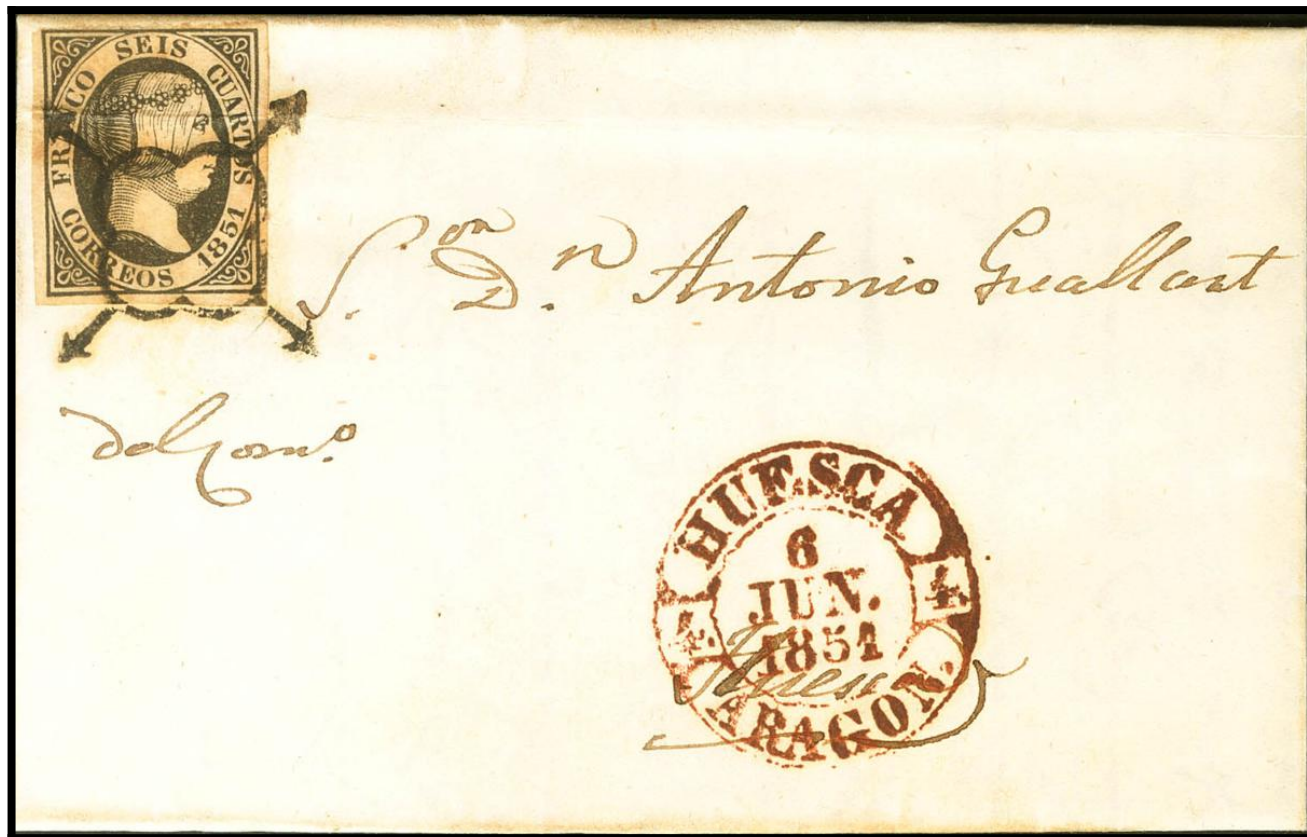 FRANCO SEIS CUARTOS
CORREOS 1851
S.on D.n Antonio Guallart
del Com.o
HUESCA
4 4
6
JUN.
1851
ARAGON.
Huesca